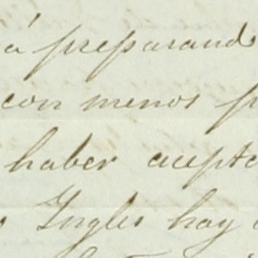 á preparando
con menos
haber acepta
Ingles hay